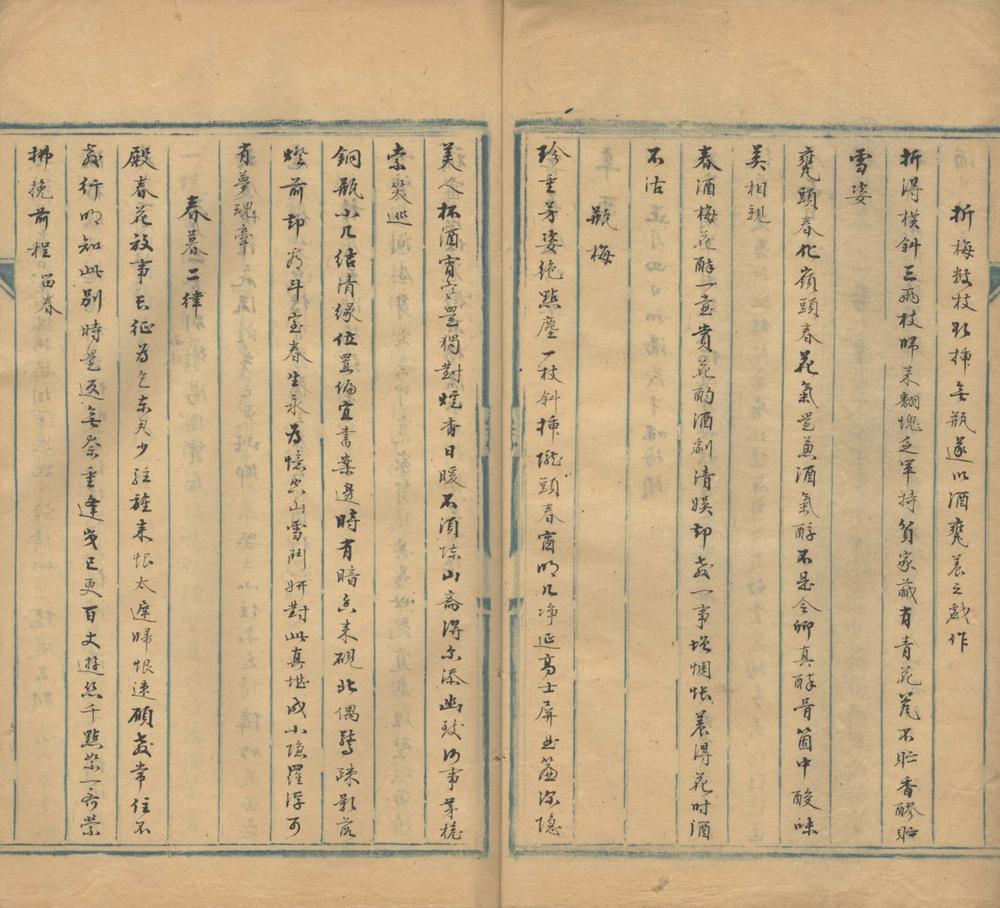 折梅數枝欲插無瓶遂以酒甕養之戲作
折得橫斜三兩枝歸來翻愧乏軍持貧家藏有青花甕不貯香醪貯
雪姿
甕頭春化嶺頭春花氣還兼酒氣醇不是令卿真醉骨箇中酸味
美相親
春酒梅花醉一壺賞花酌酒劇清娛却教一事增惆悵養得花時酒
不沽
瓶梅
珍重芳姿絕點塵一枝斜插隴頭春窗明几净延高士屏曲簾深隱
美人杯酒宵寒還獨對爐香日暖不須陳山齋得爾添幽致何事茅檐
索笑巡
銅瓶小几結清緣位置偏宜書案邊時有暗香來硯北偶驚疎影落
燈前却看斗室春生永為憶空山雪鬥妍對此真堪成小隱羅浮可
有夢魂牽
春暮二律
殿春花放事長征為乞東君少駐旌來恨太遲歸恨速願教常住不
教行明知此別時還返無奈重逢歲已更百丈遊絲千點絮一齊縈
拂挽前程留春